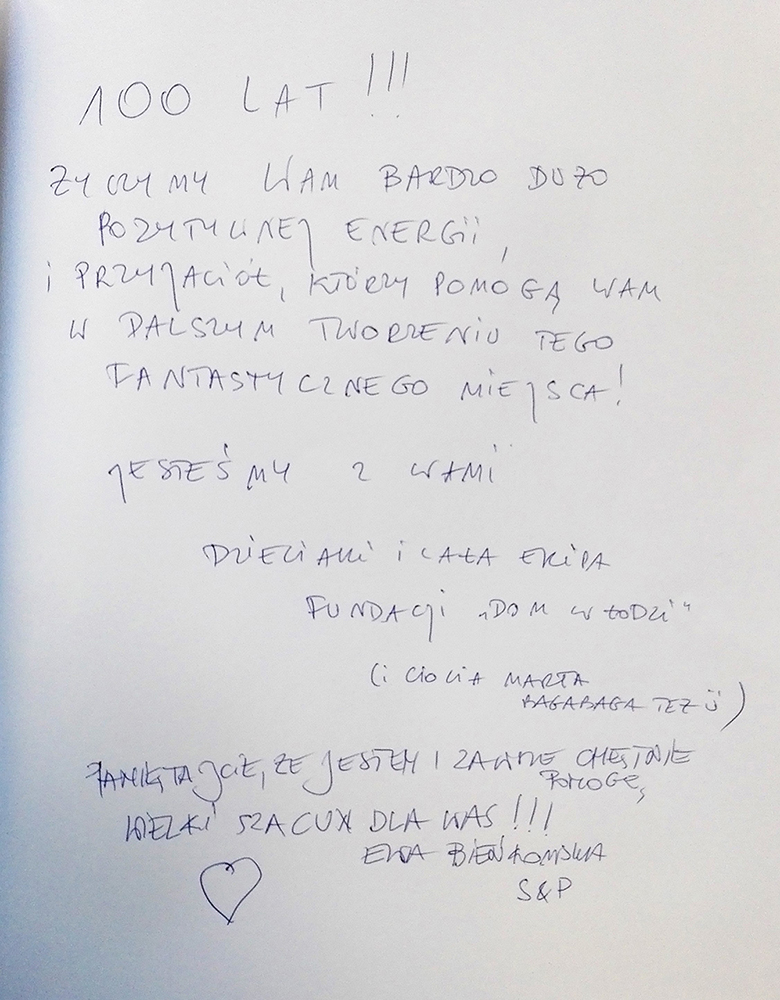 100 LAT !!!
ŻYCZYMY WAM BARDZO DUŻO
POZYTYWNEJ ENERGII,
i PRZYJACiÓŁ, KTÓRZY POMOGĄ WAM
W DALSZYM TWORZENIU TEGO
FANTASTYCZNEGO MIEJSCA!
JESTEŚMY Z WAMI
DZIECIAKI i CAŁA EKIPA
FUNDACJI „DOM W ŁODZI"
(i CIOCIA MARTA
BAGABAGA TEŻ Ü)
PAMIĘTAJCIE, ŻE JESTEM I ZAWSZE CHĘTNIE
POMOGĘ,
WIELKI SZACUN DLA WAS !!!
EWA BIEŃKOWSKA
S&P